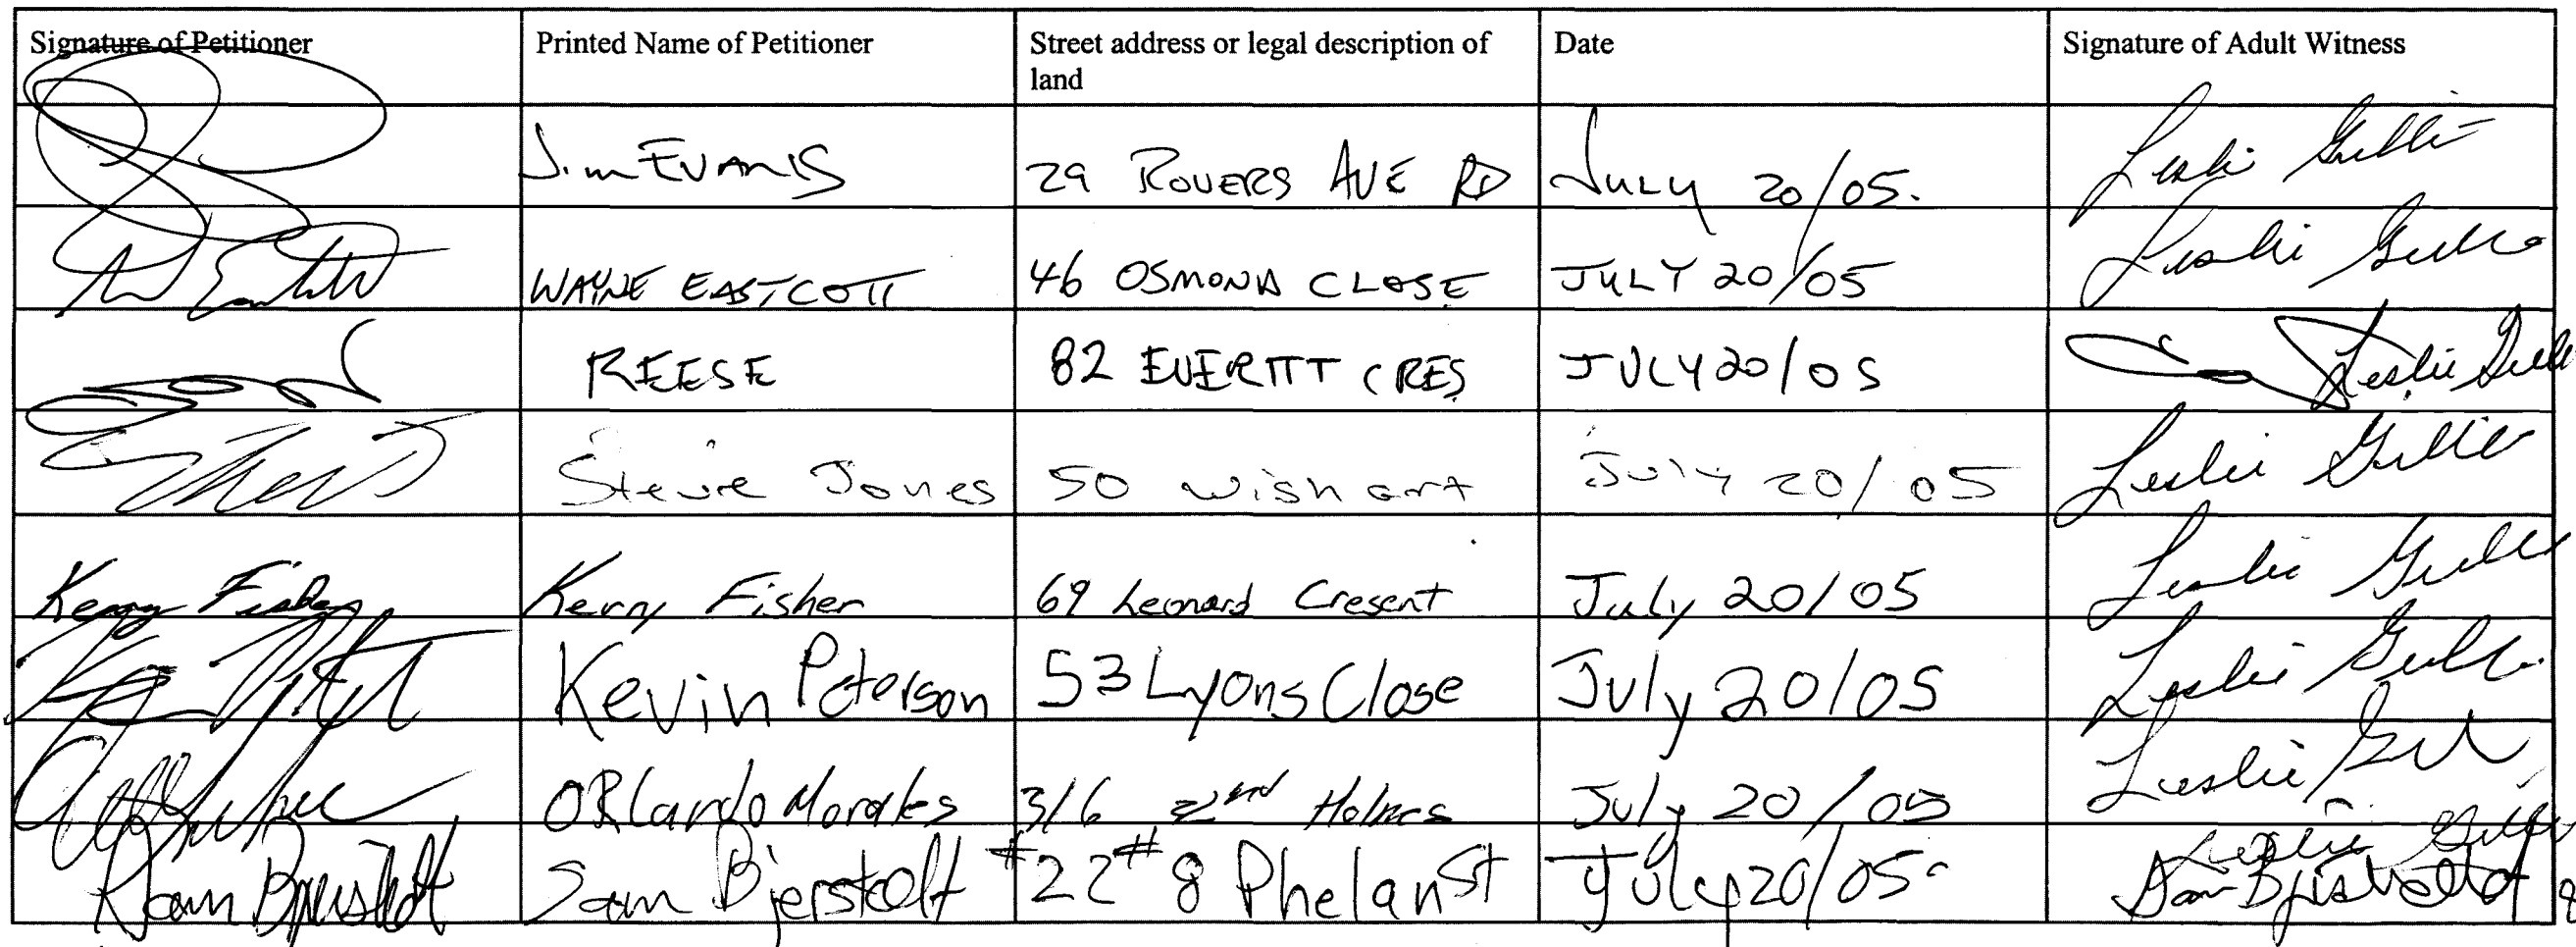 Signature of Petitioner Printed Name of Petitioner Street address or legal description of land Date Signature of Adult Witness
Jim EVANS 29 ROVERS AVE RD JULY 20/05.
WAYNE EASTCOTT 46 OSMOND CLOSE JULY 20/05
REESE 82 EVERITT CRES JULY 20/05 Leslie
Steve Jones 50 wishart July 20/05 Leslie
Kerry Fisher Kerry Fisher 69 Leonard Cresent July 20/05 Leslie
Kevin Peterson 53 Lyons Close July 20/05 Leslie
ORlando Morales 3/6 2nd Holmes July 20/05 Leslie
Sam Bjerstedt #22 #8 Phelan St July 20/05 Leslie